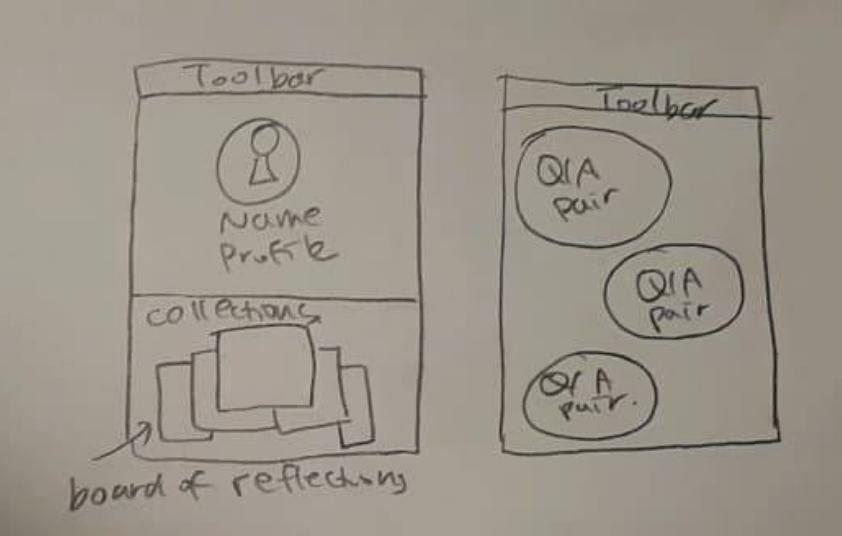 Toolbar
Name
Profile
collections
board of reflections
Toolbar
Q/A
pair
Q/A
pair
Q/A
pair.